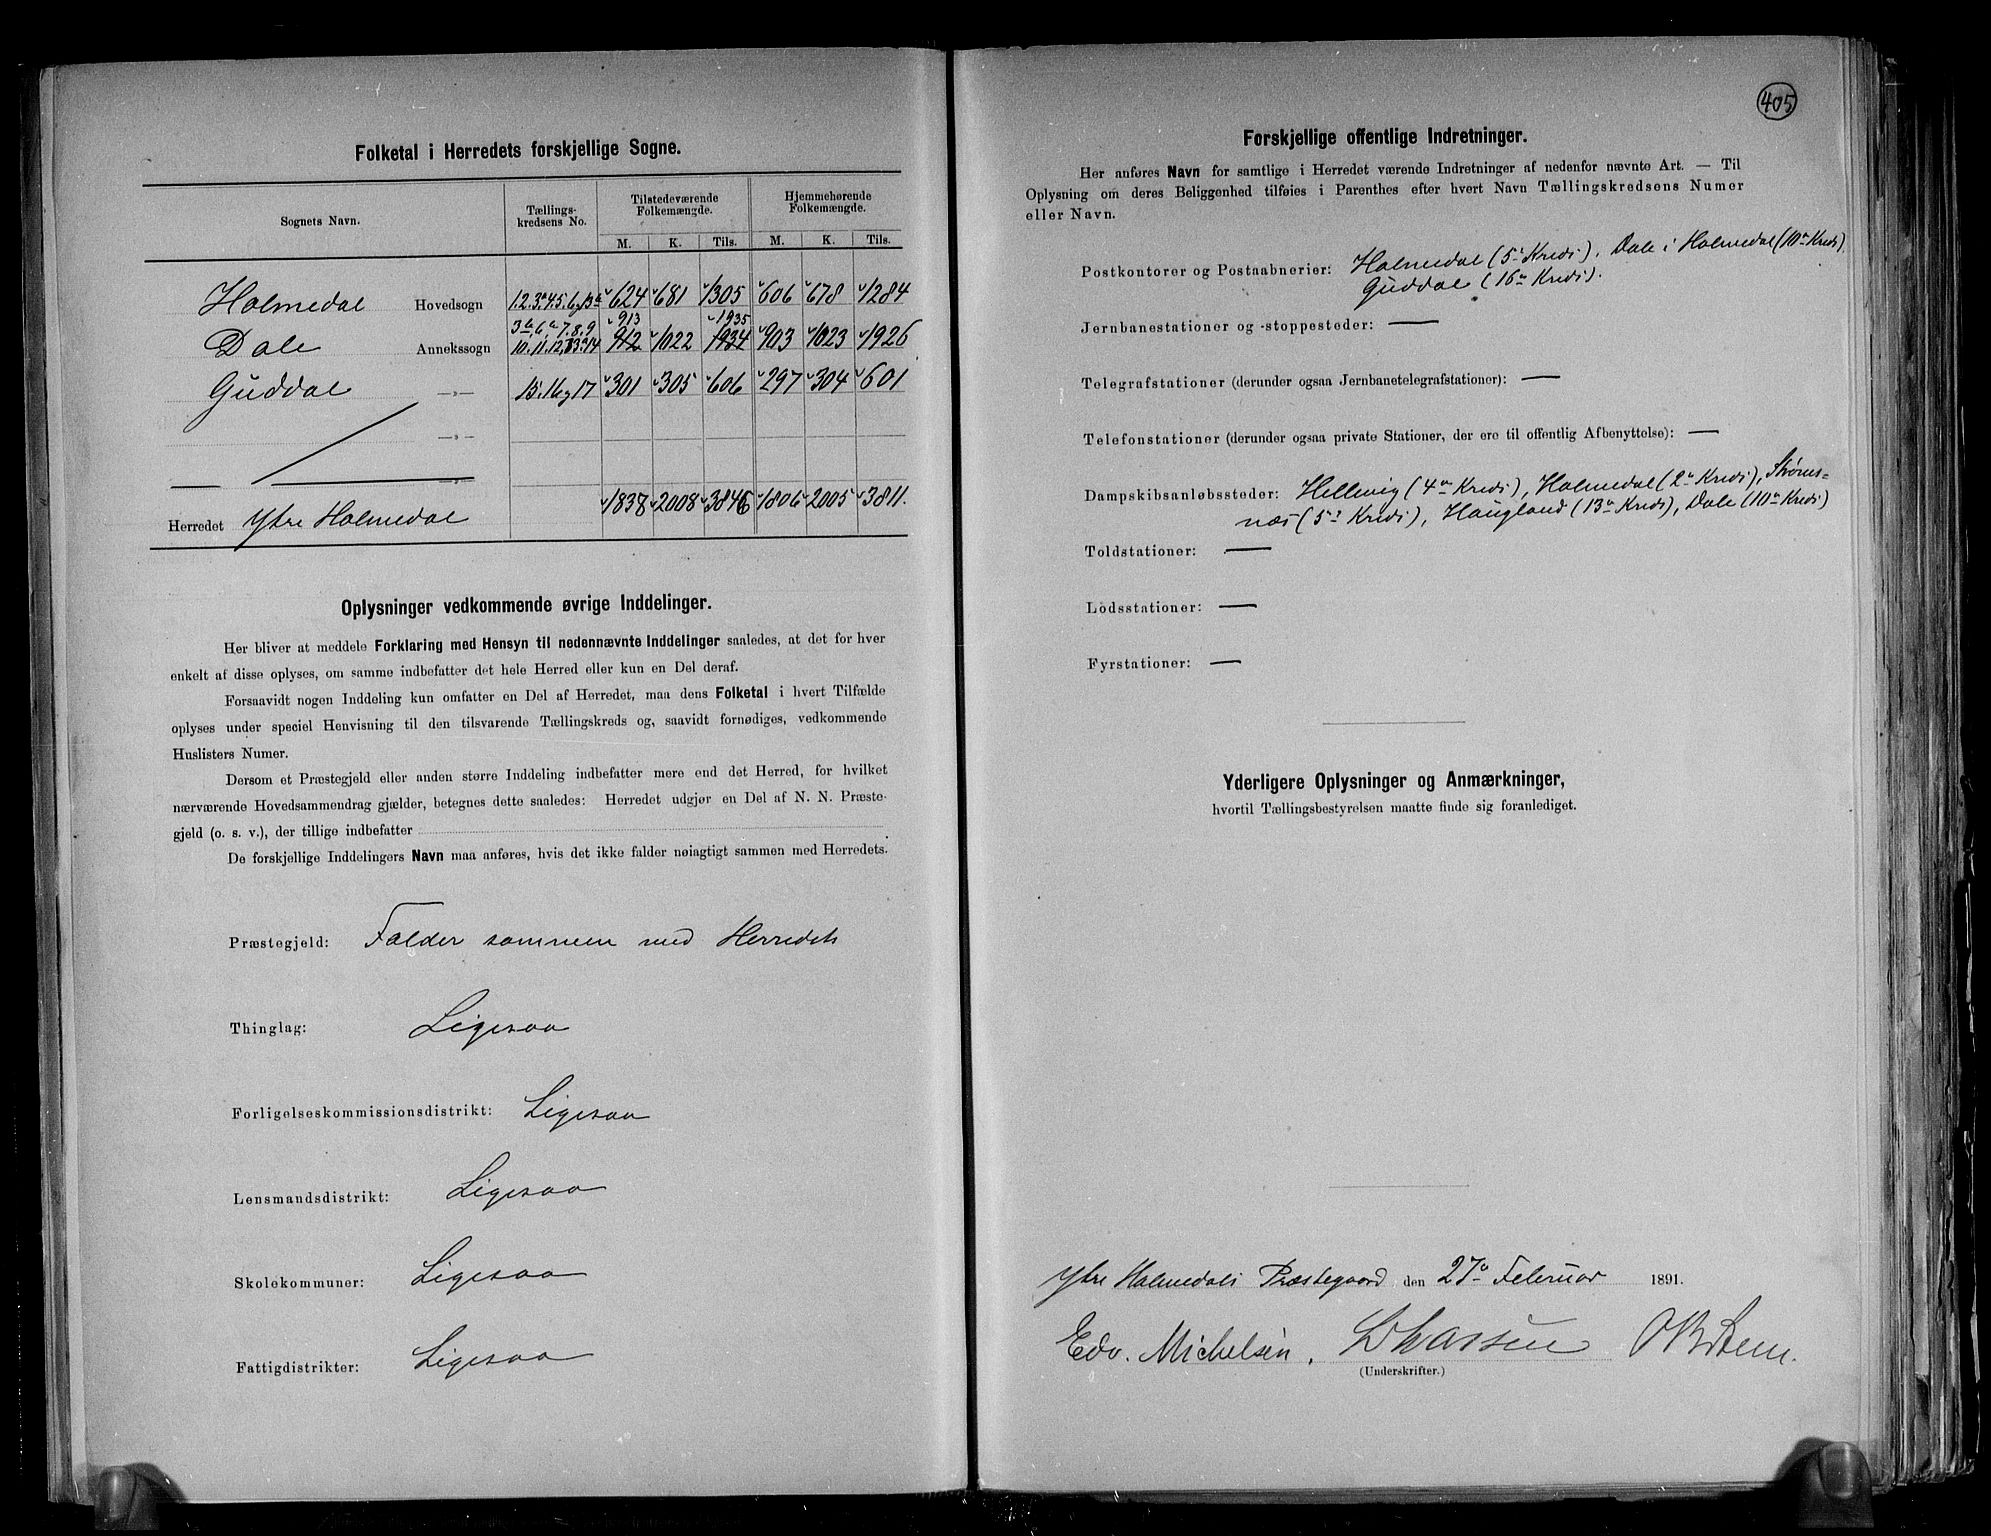 Folketal i Herredets forskjellige Sogne.
Sognets Navn.
Tællings-
kredsens No.
Tilstedeværende
Folkemængde.
Hjemmehørende
Folkemængde.
M. K. Tils. M. K. Tils.
Holmedal Hovedsogn 624 681 1305 606 678 1284
913 1935
Dale Annekssogn 912 1022 1934 903 1023 1926
Guddal —„— 15. 16 og 17 301 305 606 297 304 601
—„—
Herredet Ytre Holmedal 1838 2008 3846 1806 2005 3811.
Oplysninger vedkommende øvrige Inddelinger.
Her bliver at meddele Forklaring med Hensyn til nedennævnte Inddelinger saaledes, at det for hver
enkelt af disse oplyses, om samme indbefatter det hele Herred eller kun en Del deraf.
Forsaavidt nogen Inddeling kun omfatter en Del af Herredet, maa dens Folketal i hvert Tilfælde
oplyses under speciel Henvisning til den tilsvarende Tællingskreds og, saavidt fornødiges, vedkommende
Huslisters Numer.
Dersom et Præstegjeld eller anden større Inddeling indbefatter mere end det Herred, for hvilket
nærværende Hovedsammendrag gjælder, betegnes dette saaledes: Herredet udgjør en Del af N. N. Præste-
gjeld (o. s. v.), der tillige indbefatter
De forskjellige Inddelingers Navn maa anføres, hvis det ikke falder nøiagtigt sammen med Herredets.
Præstegjeld: Falder sammen med Herredets
Thinglag: Ligesaa
Forligelseskommissionsdistrikt: Ligesaa
Lensmandsdistrikt: Ligesaa
Skolekommuner: Ligesaa
Fattigdistrikter: Ligesaa
405
Forskjellige offentlige Indretninger.
Her anføres Navn for samtlige i Herredet værende Indretninger af nedenfor nævnte Art. — Til
Oplysning om deres Beliggenhed tilføies i Parenthes efter hvert Navn Tællingskredsens Numer
eller Navn.
Postkontorer og Postaabnerier: Holmedal (5te Kreds). Dale i Holmedal (10de Kreds).
Guddal (16de Kreds).
Jernbanestationer og -stoppesteder: —
Telegrafstationer (derunder ogsaa Jernbanetelegrafstationer): —
Telefonstationer (derunder ogsaa private Stationer, der ere til offentlig Afbenyttelse): —
Dampskibsanløbssteder: Hellevig (4de Kreds), Holmedal (2de Kreds), Strøms-
næs (5te Kreds), Haugland (13de Kreds), Dale (10de Kreds)
Toldstationer: —
Lodsstationer: —
Fyrstationer: —
Yderligere Oplysninger og Anmærkninger,
hvortil Tællingsbestyrelsen maatte finde sig foranlediget.
Ytre Holmedals Præstegaard den 27de Februar 1891.
Edv. Michelsen.
(Underskrifter.)